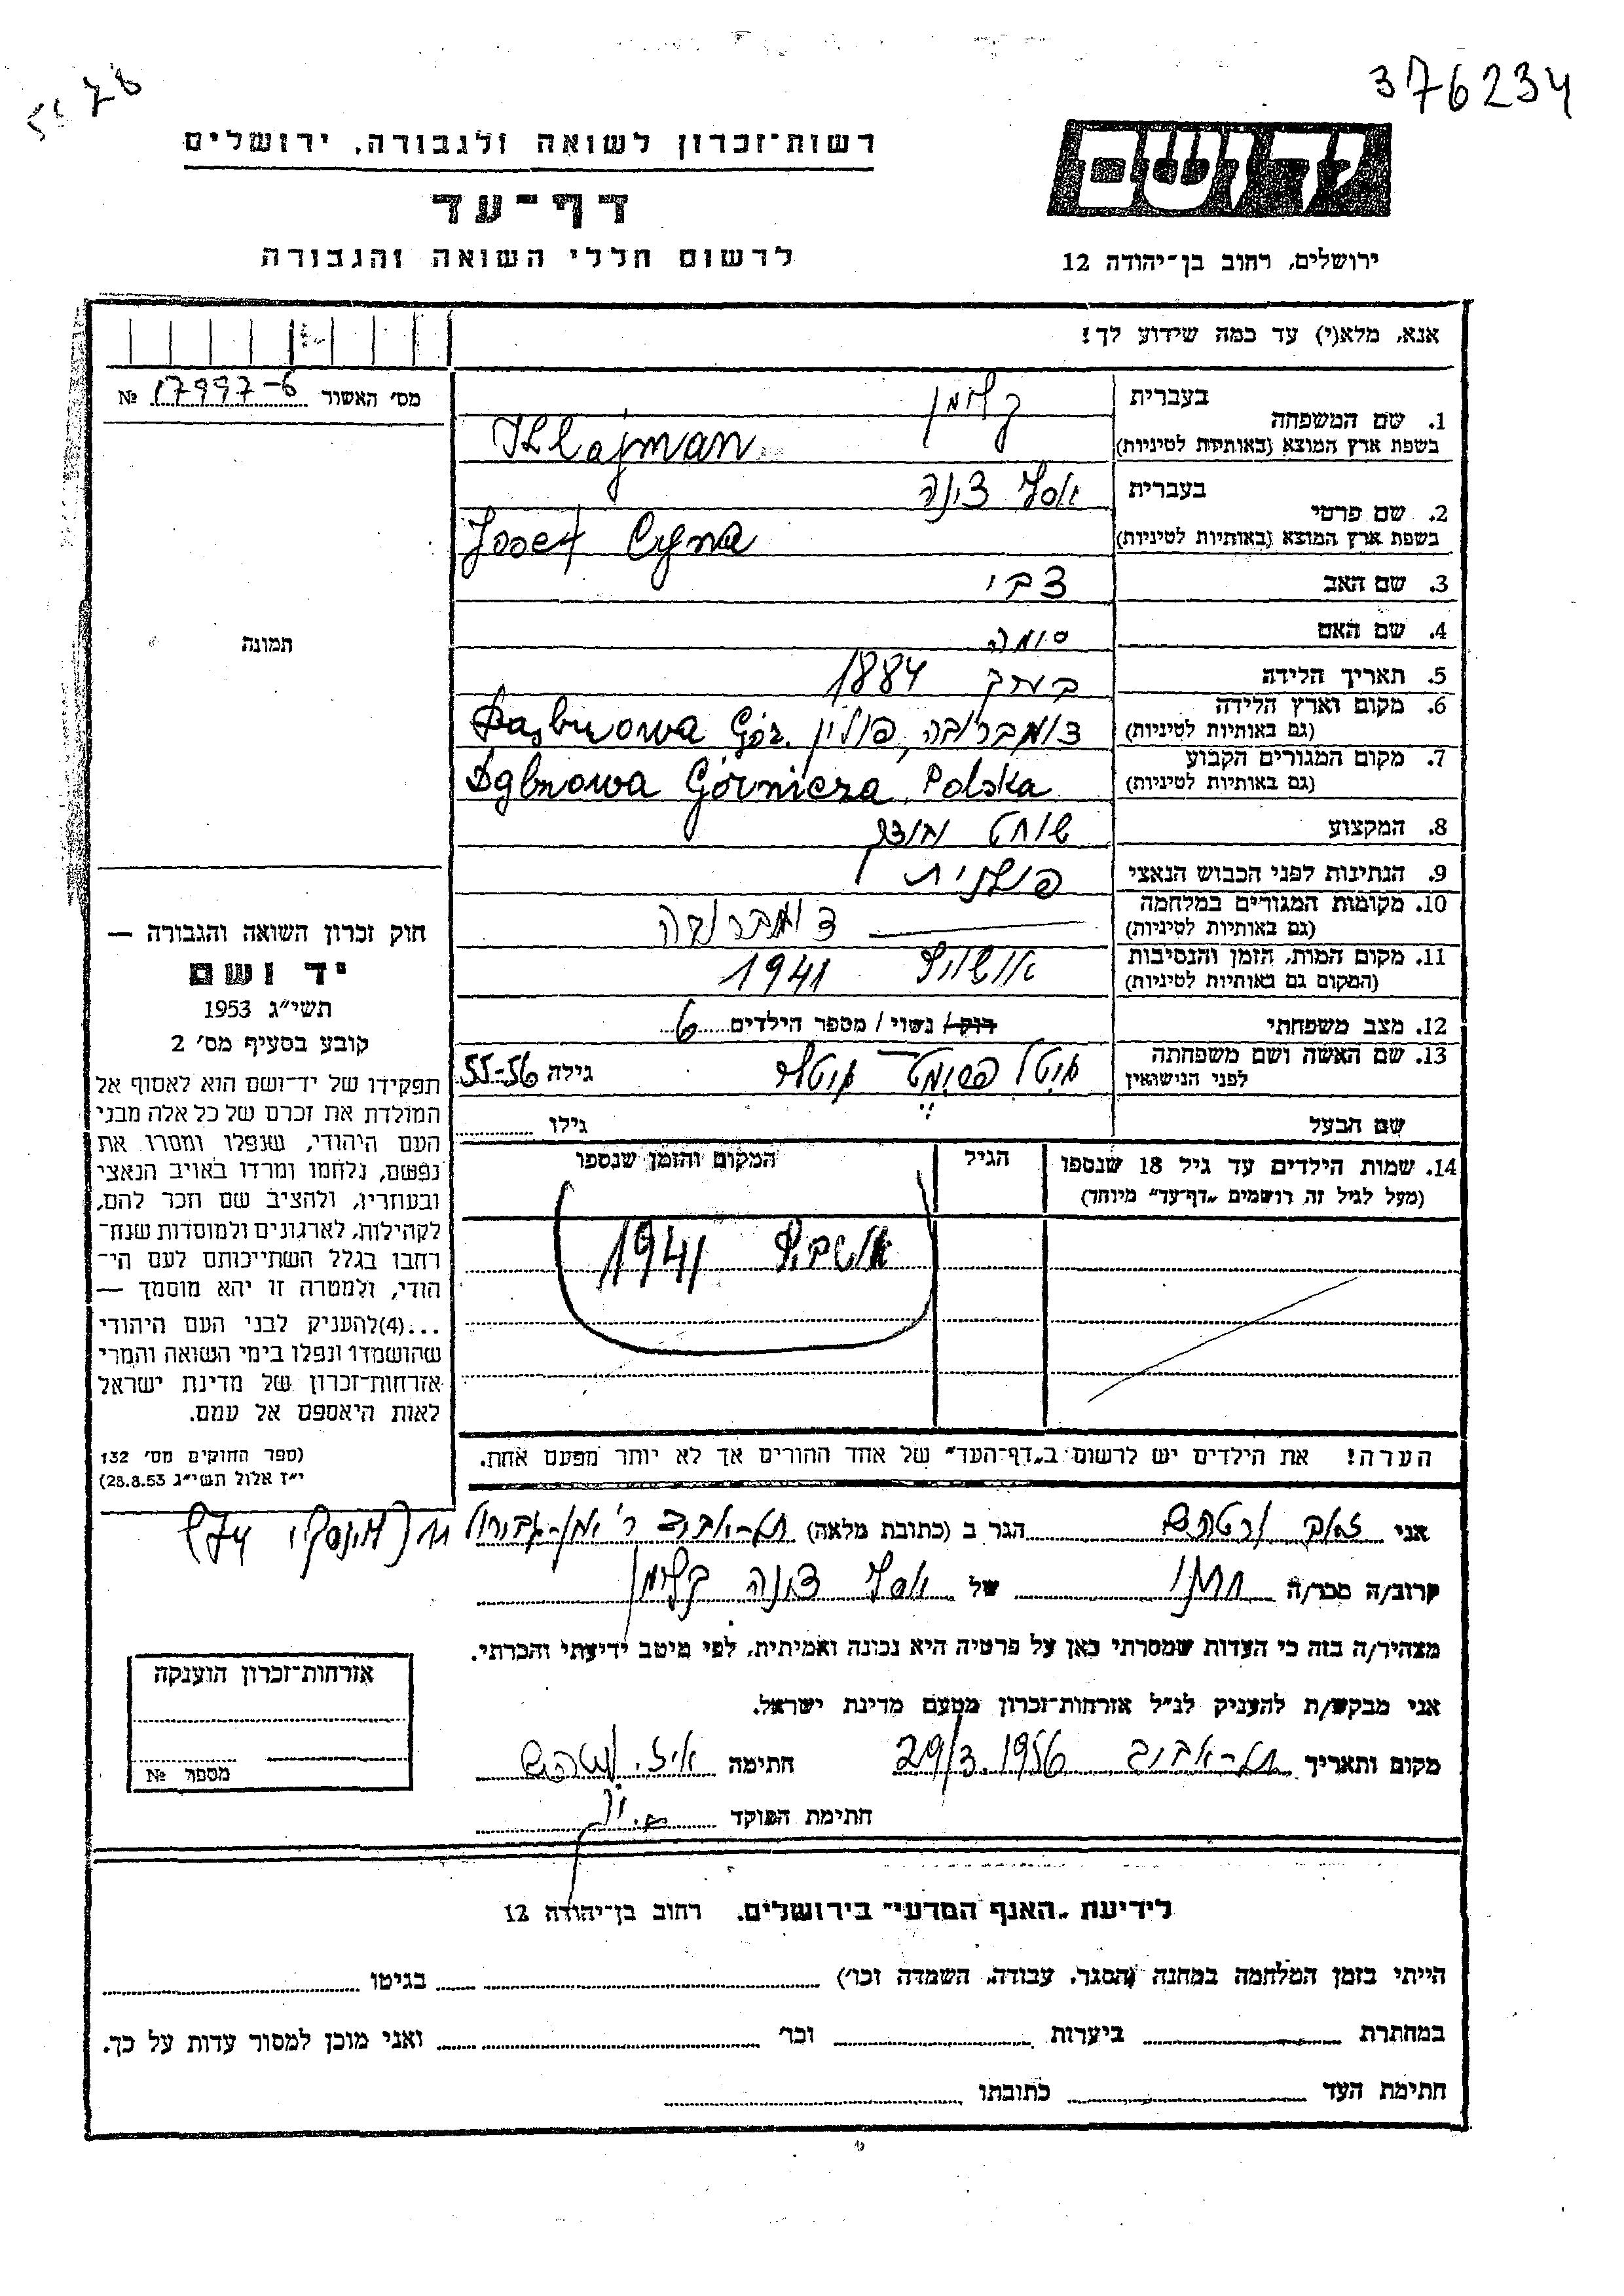 376234
רשות־זכרון לשואה ולגבורה, ירושלים
יד ושם
דף־עד
לרשום חללי השואה והגבורה
ירושלים, רחוב בן־יהודה 12
אנא, מלא(י) עד כמה שידוע לך!
מס׳ האשור 17997-6 №
תמונה
בעברית
1. שם המשפחה קליימן
בשפת ארץ המוצא (באותיות לטיניות) Klajman
בעברית
2. שם פרטי יוסף צינה
בשפת ארץ המוצא (באותיות לטיניות) Josef Cyna
3. שם האב צבי
4. שם האם
5. תאריך הלידה 1884
6. מקום וארץ הלידה דומברובה, פולין Dąbrowa Gór.
(גם באותיות לטיניות)
7. מקום המגורים הקבוע Dąbrowa Górnicza, Polska
(גם באותיות לטיניות)
8. המקצוע שוחט
9. הנתינות לפני הכבוש הנאצי פולנית
10. מקומות המגורים במלחמה דומברובה
(גם באותיות לטיניות)
11. מקום המות, הזמן והנסיבות אושויץ 1941
(המקום גם באותיות לטיניות)
12. מצב משפחתי רוק / נשוי / מספר הילדים 6
13. שם האשה ושם משפחתה
לפני הנישואין גילה 55-56
שם הבעל גילו
14. שמות הילדים עד גיל 18 שנספו הגיל המקום והזמן שנספו
(מעל לגיל זה רושמים „דף־עד״ מיוחד)
1941
הערה! את הילדים יש לרשום ב„דף־העד״ של אחד ההורים אך לא יותר מפעם אחת.
חוק זכרון השואה והגבורה —
יד ושם
תשי״ג 1953
קובע בסעיף מס׳ 2
תפקידו של יד־ושם הוא לאסוף אל
המולדת את זכרם של כל אלה מבני
העם היהודי, שנפלו ומסרו את
נפשם, נלחמו ומרדו באויב הנאצי
ובעוזריו, ולהציב שם וזכר להם,
לקהילות, לארגונים ולמוסדות שנח־
רבו בגלל השתייכותם לעם הי־
הודי, ולמטרה זו יהא מוסמך —
...(4)להעניק לבני העם היהודי
שהושמדו ונפלו בימי השואה והמרי
אזרחות־זכרון של מדינת ישראל
לאות היאספם אל עמם.
(ספר החוקים מס׳ 132
י״ז אלול תשי״ג 28.8.53)
אני הגר ב (כתובת מלאה) תל-אביב
קרוב/ה מכר/ה חתנו של יוסף צינה קליימן
מצהיר/ה בזה כי העדות שמסרתי כאן על פרטיה היא נכונה ואמיתית, לפי מיטב ידיעתי והכרתי.
אני מבקש/ת להעניק לנ״ל אזרחות־זכרון מטעם מדינת ישראל.
מקום ותאריך תל-אביב 29/3.1956 חתימה
חתימת הפוקד
אזרחות־זכרון הוענקה
מספר №
לידיעת „האגף המדעי״ בירושלים, רחוב בן־יהודה 12
הייתי בזמן המלחמה במחנה (הסגר, עבודה, השמדה וכו׳) בגיטו
במחתרת ביערות וכו׳ ואני מוכן למסור עדות על כך.
חתימת העד כתובתו